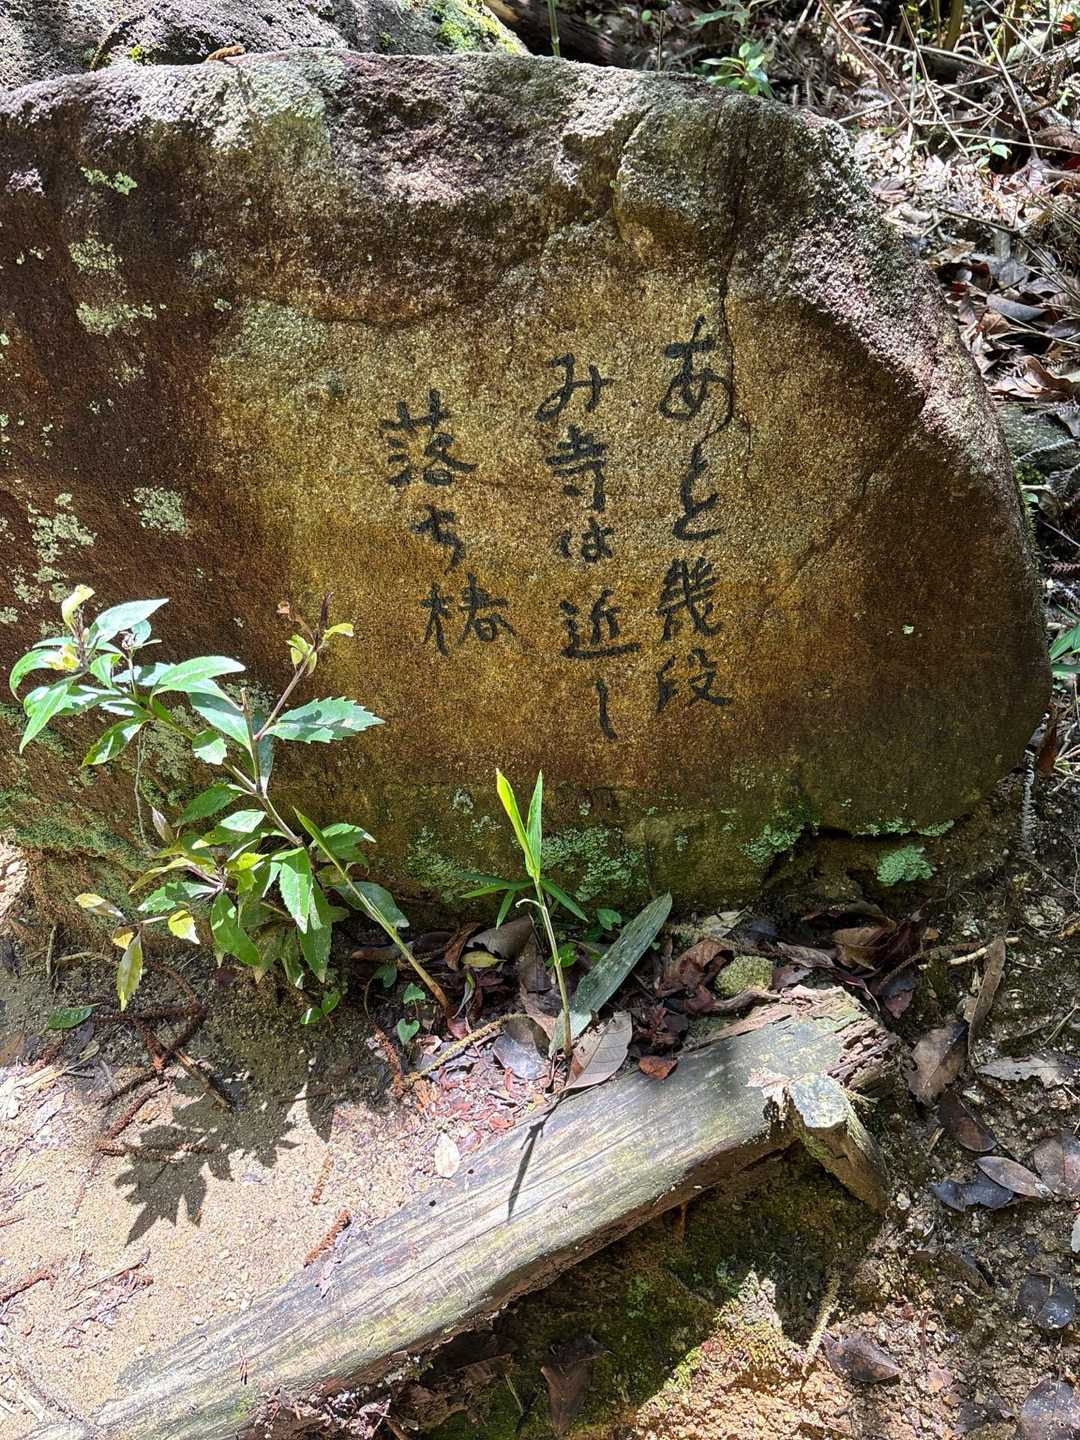 あと幾段
み寺は近し
落ち椿